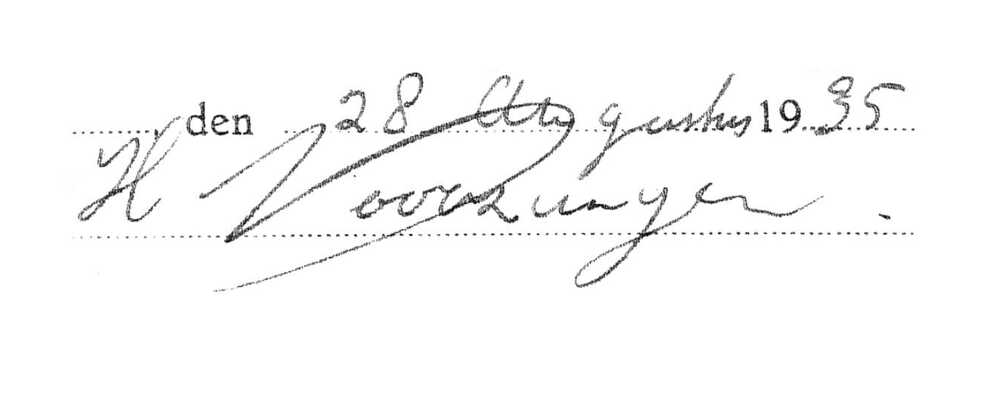 den 28 Augustus 1935
H Voorzungen.